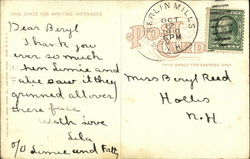 THIS SPACE FOR WRITING MESSAGES
Dear Beryl
Thank you
ever so much
Simmie and
saw it they
grinned all over
there face
With love
Lila
c/o Simmie and
BERLIN MILLS
OCT
N.H.
POST
CARD
THIS SPACE FOR ADDRESS ONLY
Miss Beryl Reed
Hollis
N.H